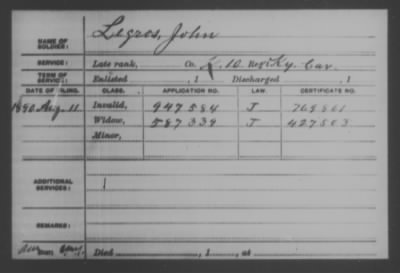 NAME OF SOLDIER: Legros, John
SERVICE: Late rank, Co. K, 10 Reg't Ky. Cav.
TERM OF SERVICE: Enlisted , 1 Discharged , 1
DATE OF FILING. CLASS. APPLICATION NO. LAW. CERTIFICATE NO.
1890 Aug. 11. Invalid, 947584 J
Widow, 587339 J 427503
Minor,
ADDITIONAL SERVICES:
REMARKS:
Died , 1 , at